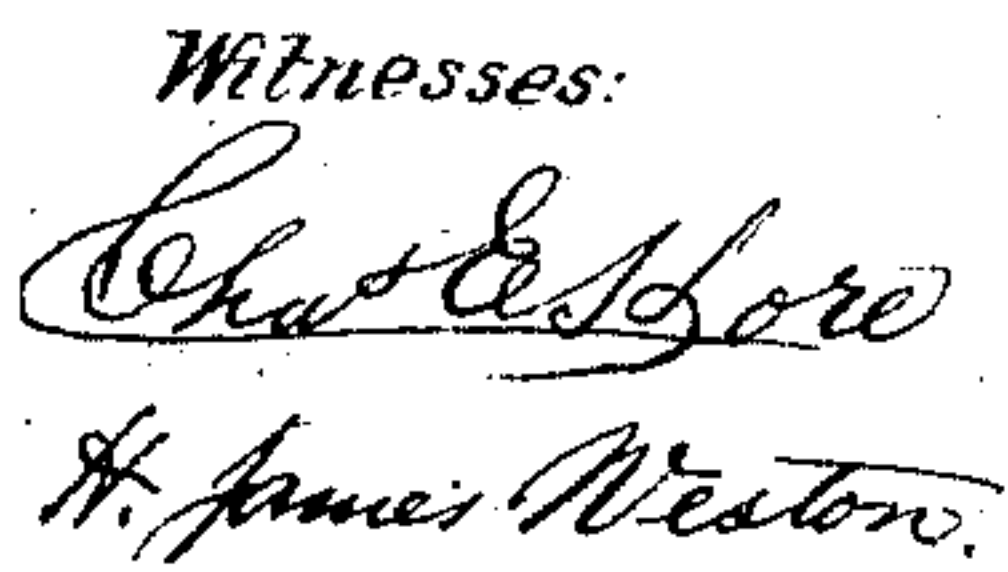 Witnesses:
Chas E. Lore
H. James Weston.